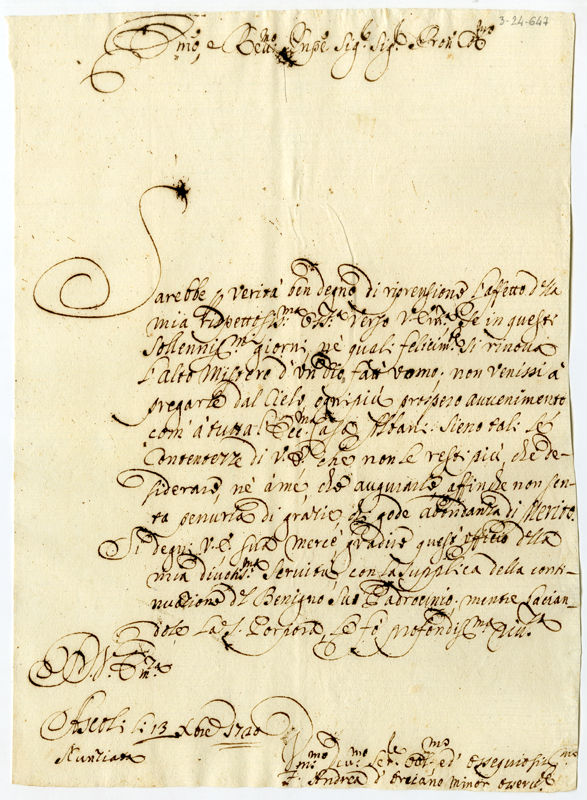 3-24-647
Em.mo, e Rev.mo Pnpe Sig.r Sig.r Pron Col.mo
Sarebbe p verità ben degno di riprensione l'affetto della
mia rispettosis.ma verso V.E. se in questi
sollennis.mi giorni, ne' quali felicim.te si rinova
l'alto Mistero d'un Dio fatt' uomo, non venissi à
pregarle dal Cielo ogni più prospero avvenimento
com' à tutta l'Ecc.ma Casa Albani. Sieno tali le
Contentezze di V.E. che non le resti più che de-
siderare, nè à me che augurarle, affinche non sen-
ta penuria di grazie, chi gode abondanza di Merito.
Si degni V.E. sua mercè gradire quest' officio della
mia divotis.ma servitù con la supplica della conti-
nuazione del Benigno suo Padrocinio, mentre bacian-
dole la S. Porpora, le fò profondis.ma riv.za
D. V. Em.za
Ascoli li 13 Xbre 1720
Nunziata
Um.mo Div.mo Ser.e Obl.mo ed ossequiosis.mo
F. Andrea d' minor osserv.e